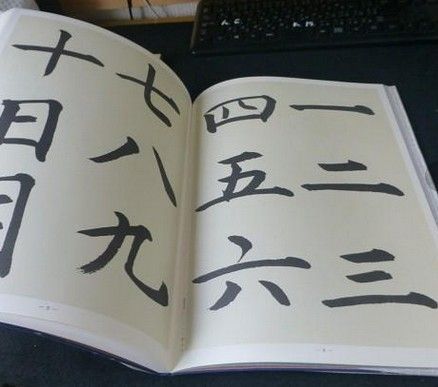 一二三
四五六
七八九
十日月